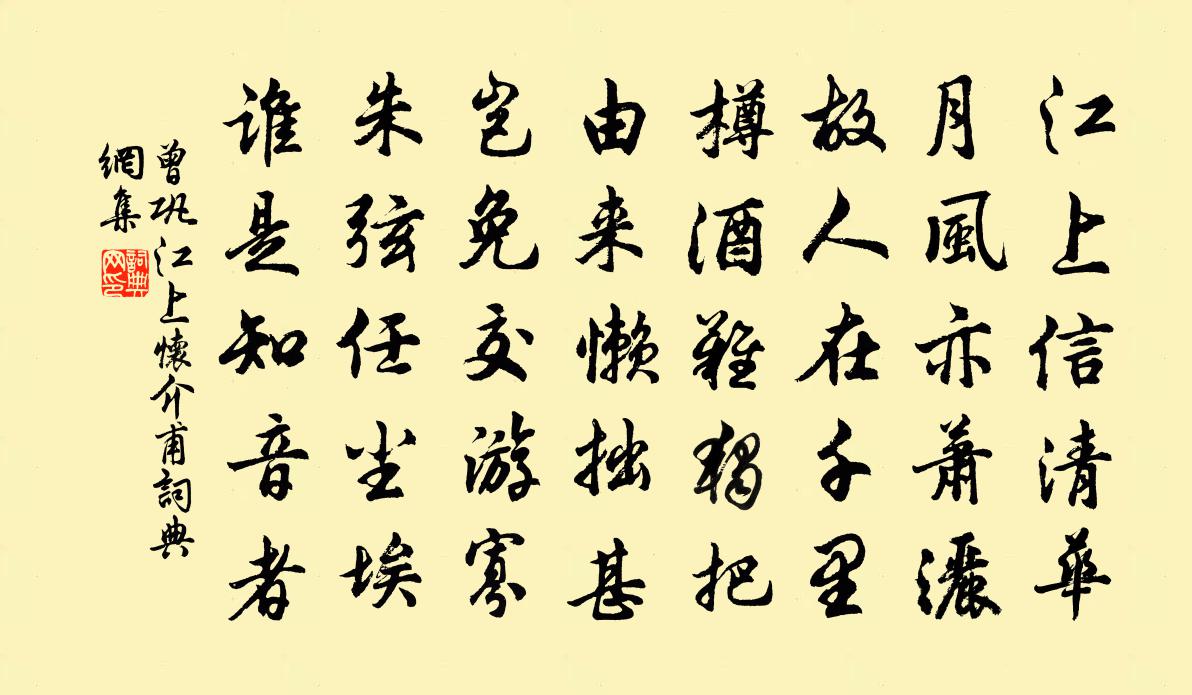 江上信清華
月風亦蕭灑
故人在千里
樽酒難獨把
由来懶拙甚
岂免交游寡
朱弦任尘埃
谁是知音者
曾巩江上懷介甫詞典
網集
詞典
网印